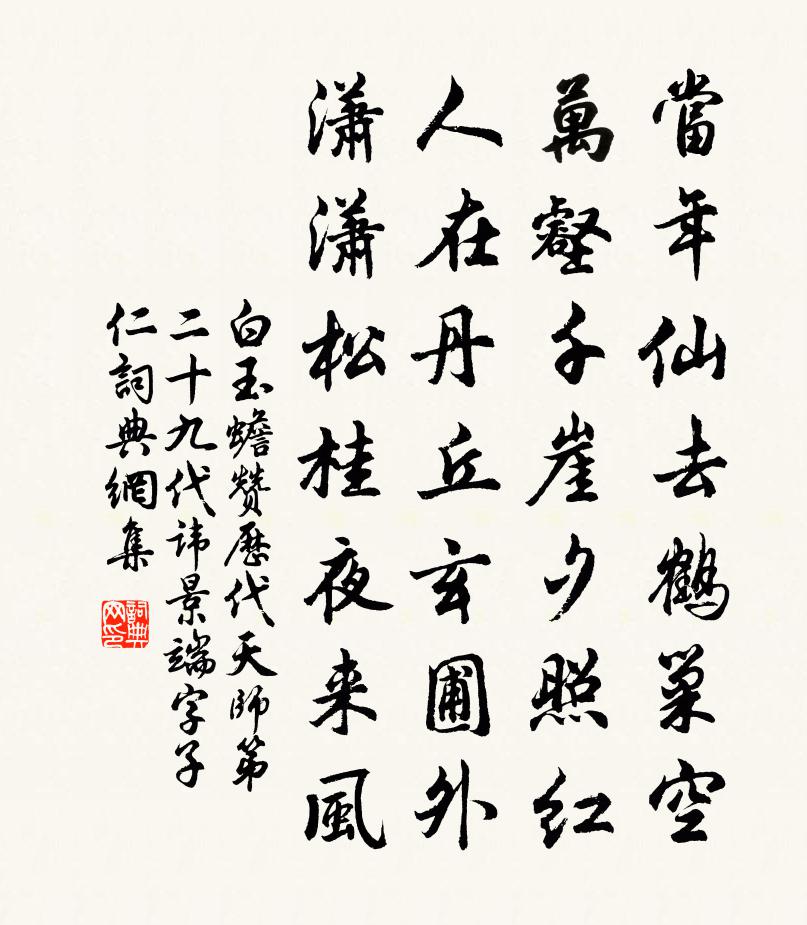 當年仙去鶴巢空
萬壑千崖夕照紅
人在丹丘玄圃外
瀟瀟松桂夜来風
白玉蟾贊歷代天師第
二十九代諱景端字子
仁詞典網集
詞典网印